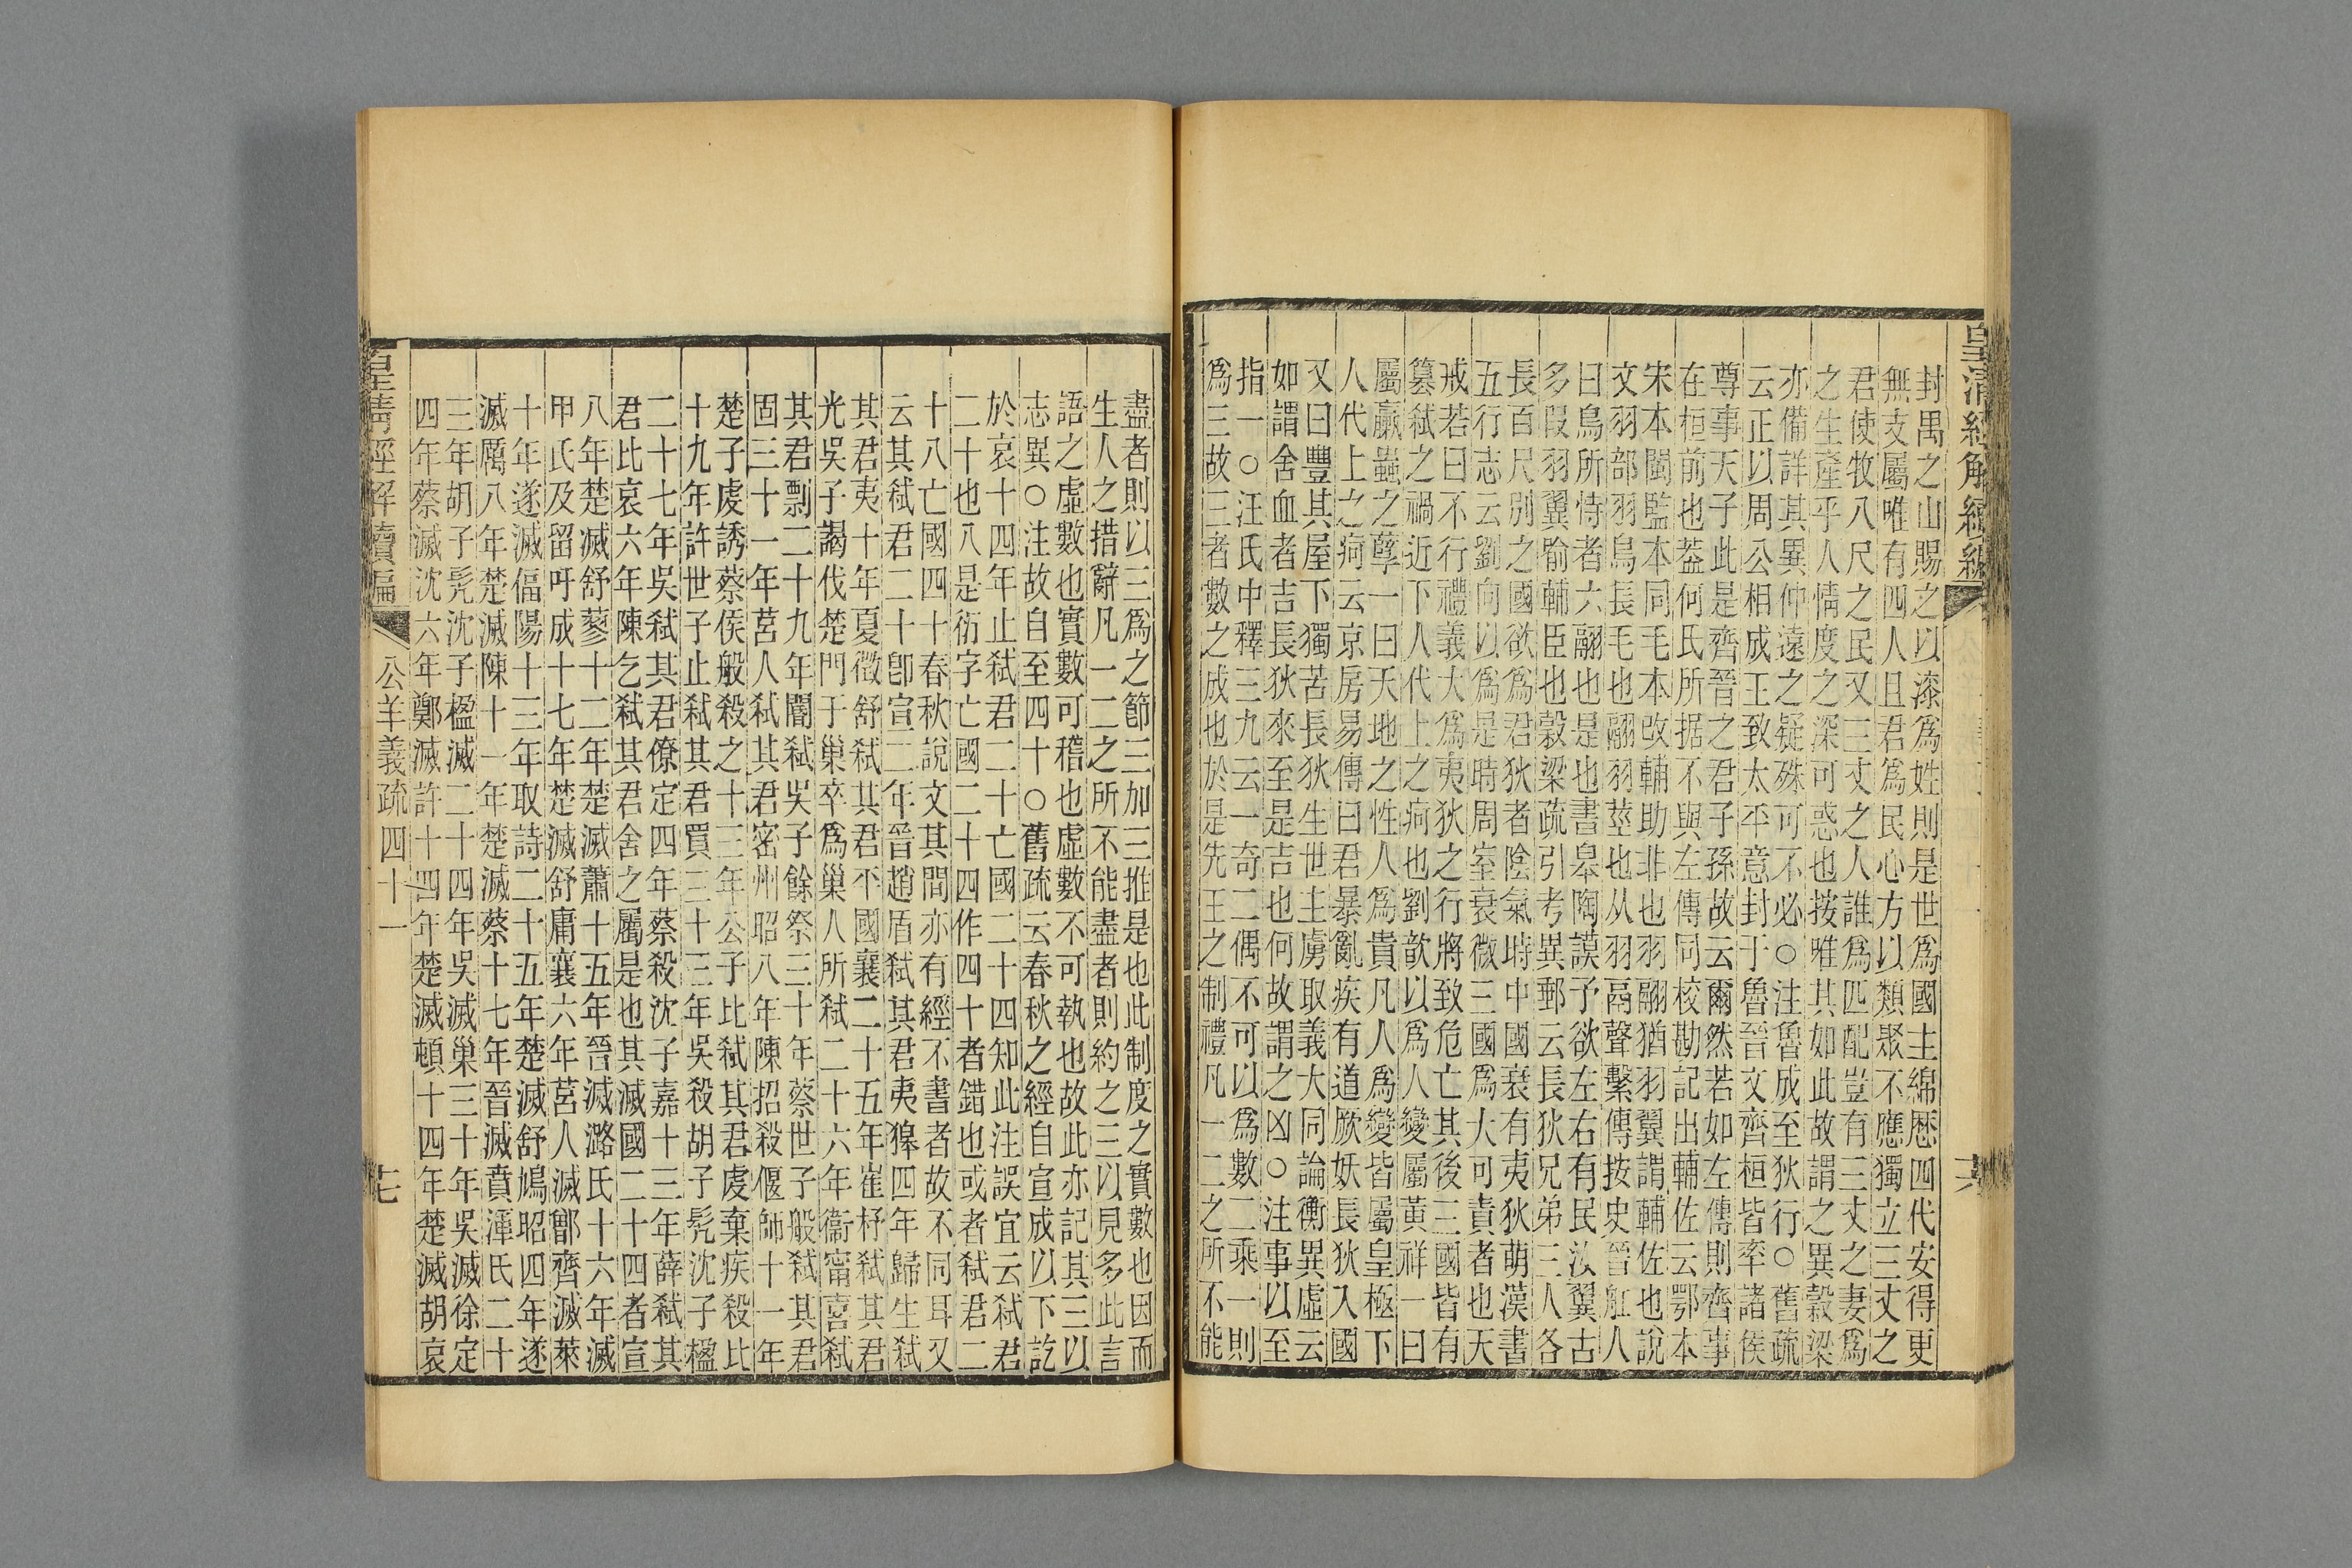 皇清經解續編
封禺之山賜之以漆為姓則是世為國主綿歷四代安得更
無支屬唯有四人且君為民心方以類聚不應獨立三丈之
君使牧八尺之民又三丈之人誰為匹配豈有三丈之妻為
之生產乎人情度之深可惑也按唯其如此故謂之異穀梁
亦備詳其異仲遠之疑殊可不必○注魯成至狄行○舊疏
云正以周公相成王致太平意封于魯晉文齊桓皆率諸侯
尊事天子此是齊晉之君子孫故云爾然若如左傳則齊事
在桓前也葢何氏所据不與左傳同校勘記出輔佐云鄂本
宋本閩監本同毛本改輔助非也羽翮猶羽翼謂輔佐也說
文羽部羽鳥長毛也翮羽莖也从羽鬲聲繫傳按史晉舡人
曰鳥所恃者六翮也是也書皋陶謨予欲左右有民汝翼古
多叚羽翼喻輔臣也穀梁疏引考異郵云長狄兄弟三人各
長百尺別之國欲為君狄者陰氣時中國衰有夷狄萌漢書
五行志云劉向以為是時周室衰微三國為大可責者也天
戒若曰不行禮義大為夷狄之行將致危亡其後三國皆有
篡弒之禍近下人代上之痾也劉歆以為人變屬黃祥一曰
屬蠃蟲之孽一曰天地之性人為貴凡人為變皆屬皇極下
人代上之痾云京房易傳曰君暴亂疾有道厥妖長狄入國
又曰豐其屋下獨苦長狄生世主虜取義大同論衡異虛云
如謂舍血者吉長狄來至是吉也何故謂之凶○注事以至
指一○汪氏中釋三九云一奇二偶不可以為數二乘一則
為三故三者數之成也於是先王之制禮凡一二之所不能
盡者則以三為之節三加三推是也此制度之實數也因而
生人之措辭凡一二之所不能盡者則約之三以見多此言
語之虛數也實數可稽也虛數不可執也故此亦記其三以
志異○注故自至四十○舊疏云春秋之經自宣成以下訖
於哀十四年止弒君二十亡國二十四知此注誤宜云弒君
二十也八是衍字亡國二十四作四十者錯也或者弒君二
十八亡國四十春秋說文其間亦有經不書者故不同耳又
云其弒君二十卽宣二年晉趙盾弒其君夷獋四年歸生弒
其君夷十年夏徵舒弒其君平國襄二十五年崔杼弒其君
光吳子謁伐楚門于巢卒為巢人所弒二十六年衞甯喜弒
其君剽二十九年閽弒吳子餘祭三十年蔡世子般弒其君
固三十一年莒人弒其君密州昭八年陳招殺偃師十一年
楚子虔誘蔡侯般殺之十三年公子比弒其君虔棄疾殺比
十九年許世子止弒其君買二十三年吳殺胡子髠沈子楹
二十七年吳弒其君僚定四年蔡殺沈子嘉十三年薛弒其
君比哀六年陳乞弒其君舍之屬是也其滅國二十四者宣
八年楚滅舒蓼十二年楚滅蕭十五年晉滅潞氏十六年滅
甲氏及留吁成十七年楚滅舒庸襄六年莒人滅鄫齊滅萊
十年遂滅偪陽十三年取詩二十五年楚滅舒鳩昭四年遂
滅厲八年楚滅陳十一年楚滅蔡十七年晉滅賁渾氏二十
三年胡子髠沈子楹滅二十四年吳滅巢三十年吳滅徐定
四年蔡滅沈六年鄭滅許十四年楚滅頓十四年楚滅胡哀
皇清經解續編 公羊義疏四十一